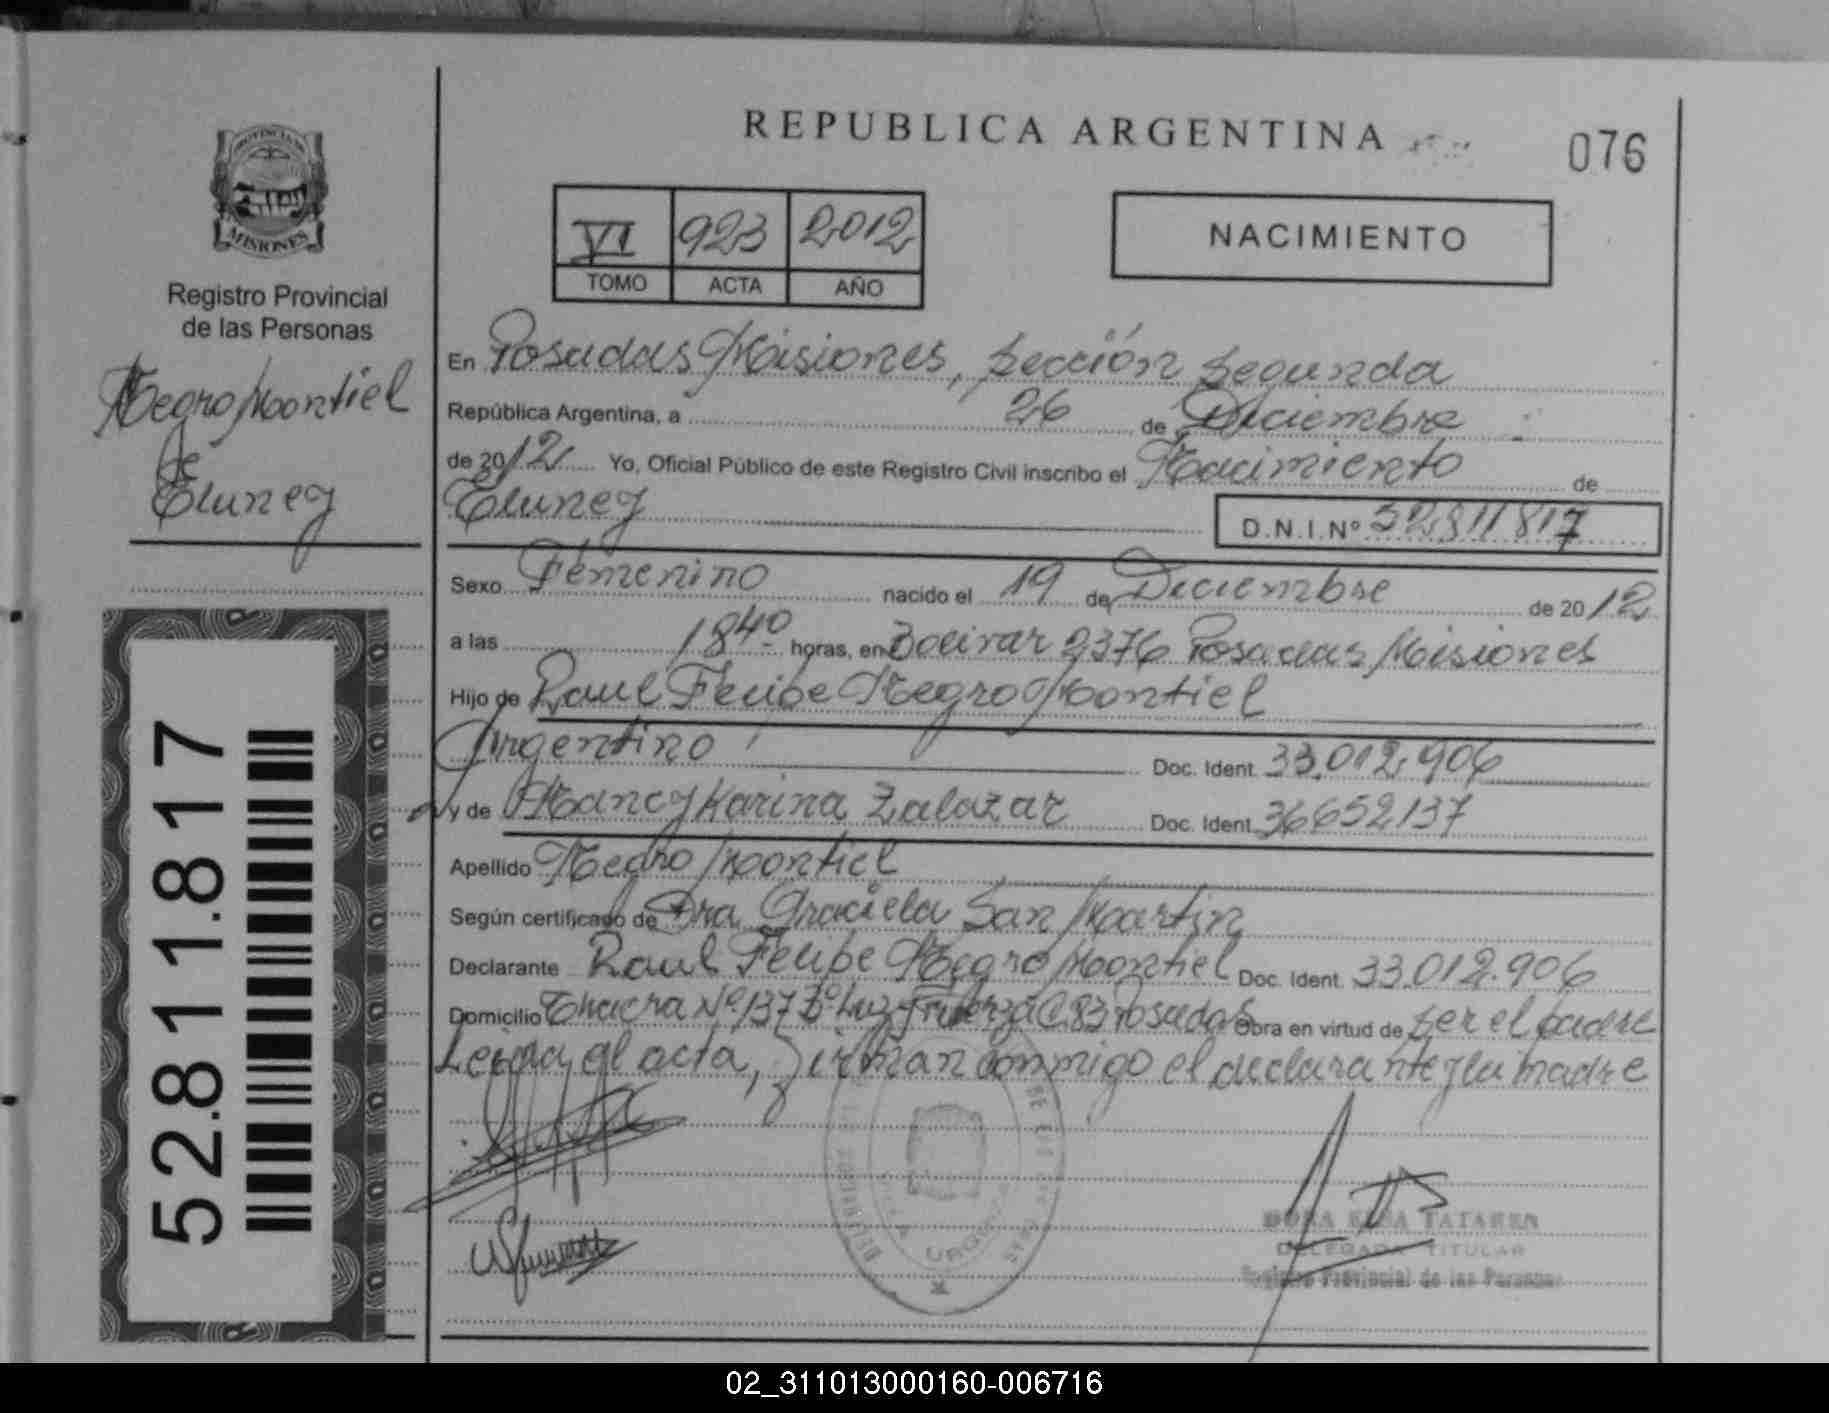 REPUBLICA ARGENTINA
076
PROVINCIA DE
MISIONES
Registro Provincial
de las Personas
Negro Montiel
de
Eluney
52.811.817
VI 923 2012
TOMO ACTA AÑO
NACIMIENTO
En Posadas Misiones, Sección Segunda
República Argentina, a 26 de Diciembre
de 2012 Yo, Oficial Público de este Registro Civil inscribo el Nacimiento de
Eluney D.N.I.Nº 52811817
Sexo Femenino nacido el 19 de Diciembre de 2012
a las 18 40 horas, en Bolivar 2376 Posadas Misiones
Hijo de Raul Felipe Negro Montiel
Argentino Doc. Ident. 33.012.906
y de Nancy Karina Zalazar Doc. Ident. 36652137
Apellido Negro Montiel
Según certificado de Dra Graciela San Martin
Declarante Raul Felipe Negro Montiel Doc. Ident. 33.012.906
Domicilio Chacra Nº 137 Bº Luz y Fuerza C 83 Posadas Obra en virtud de ser el padre
Leida el acta, firman conmigo el declarante y la madre
TATAREN
DELEGADA TITULAR
Registro Provincial de las Personas
02_311013000160-006716